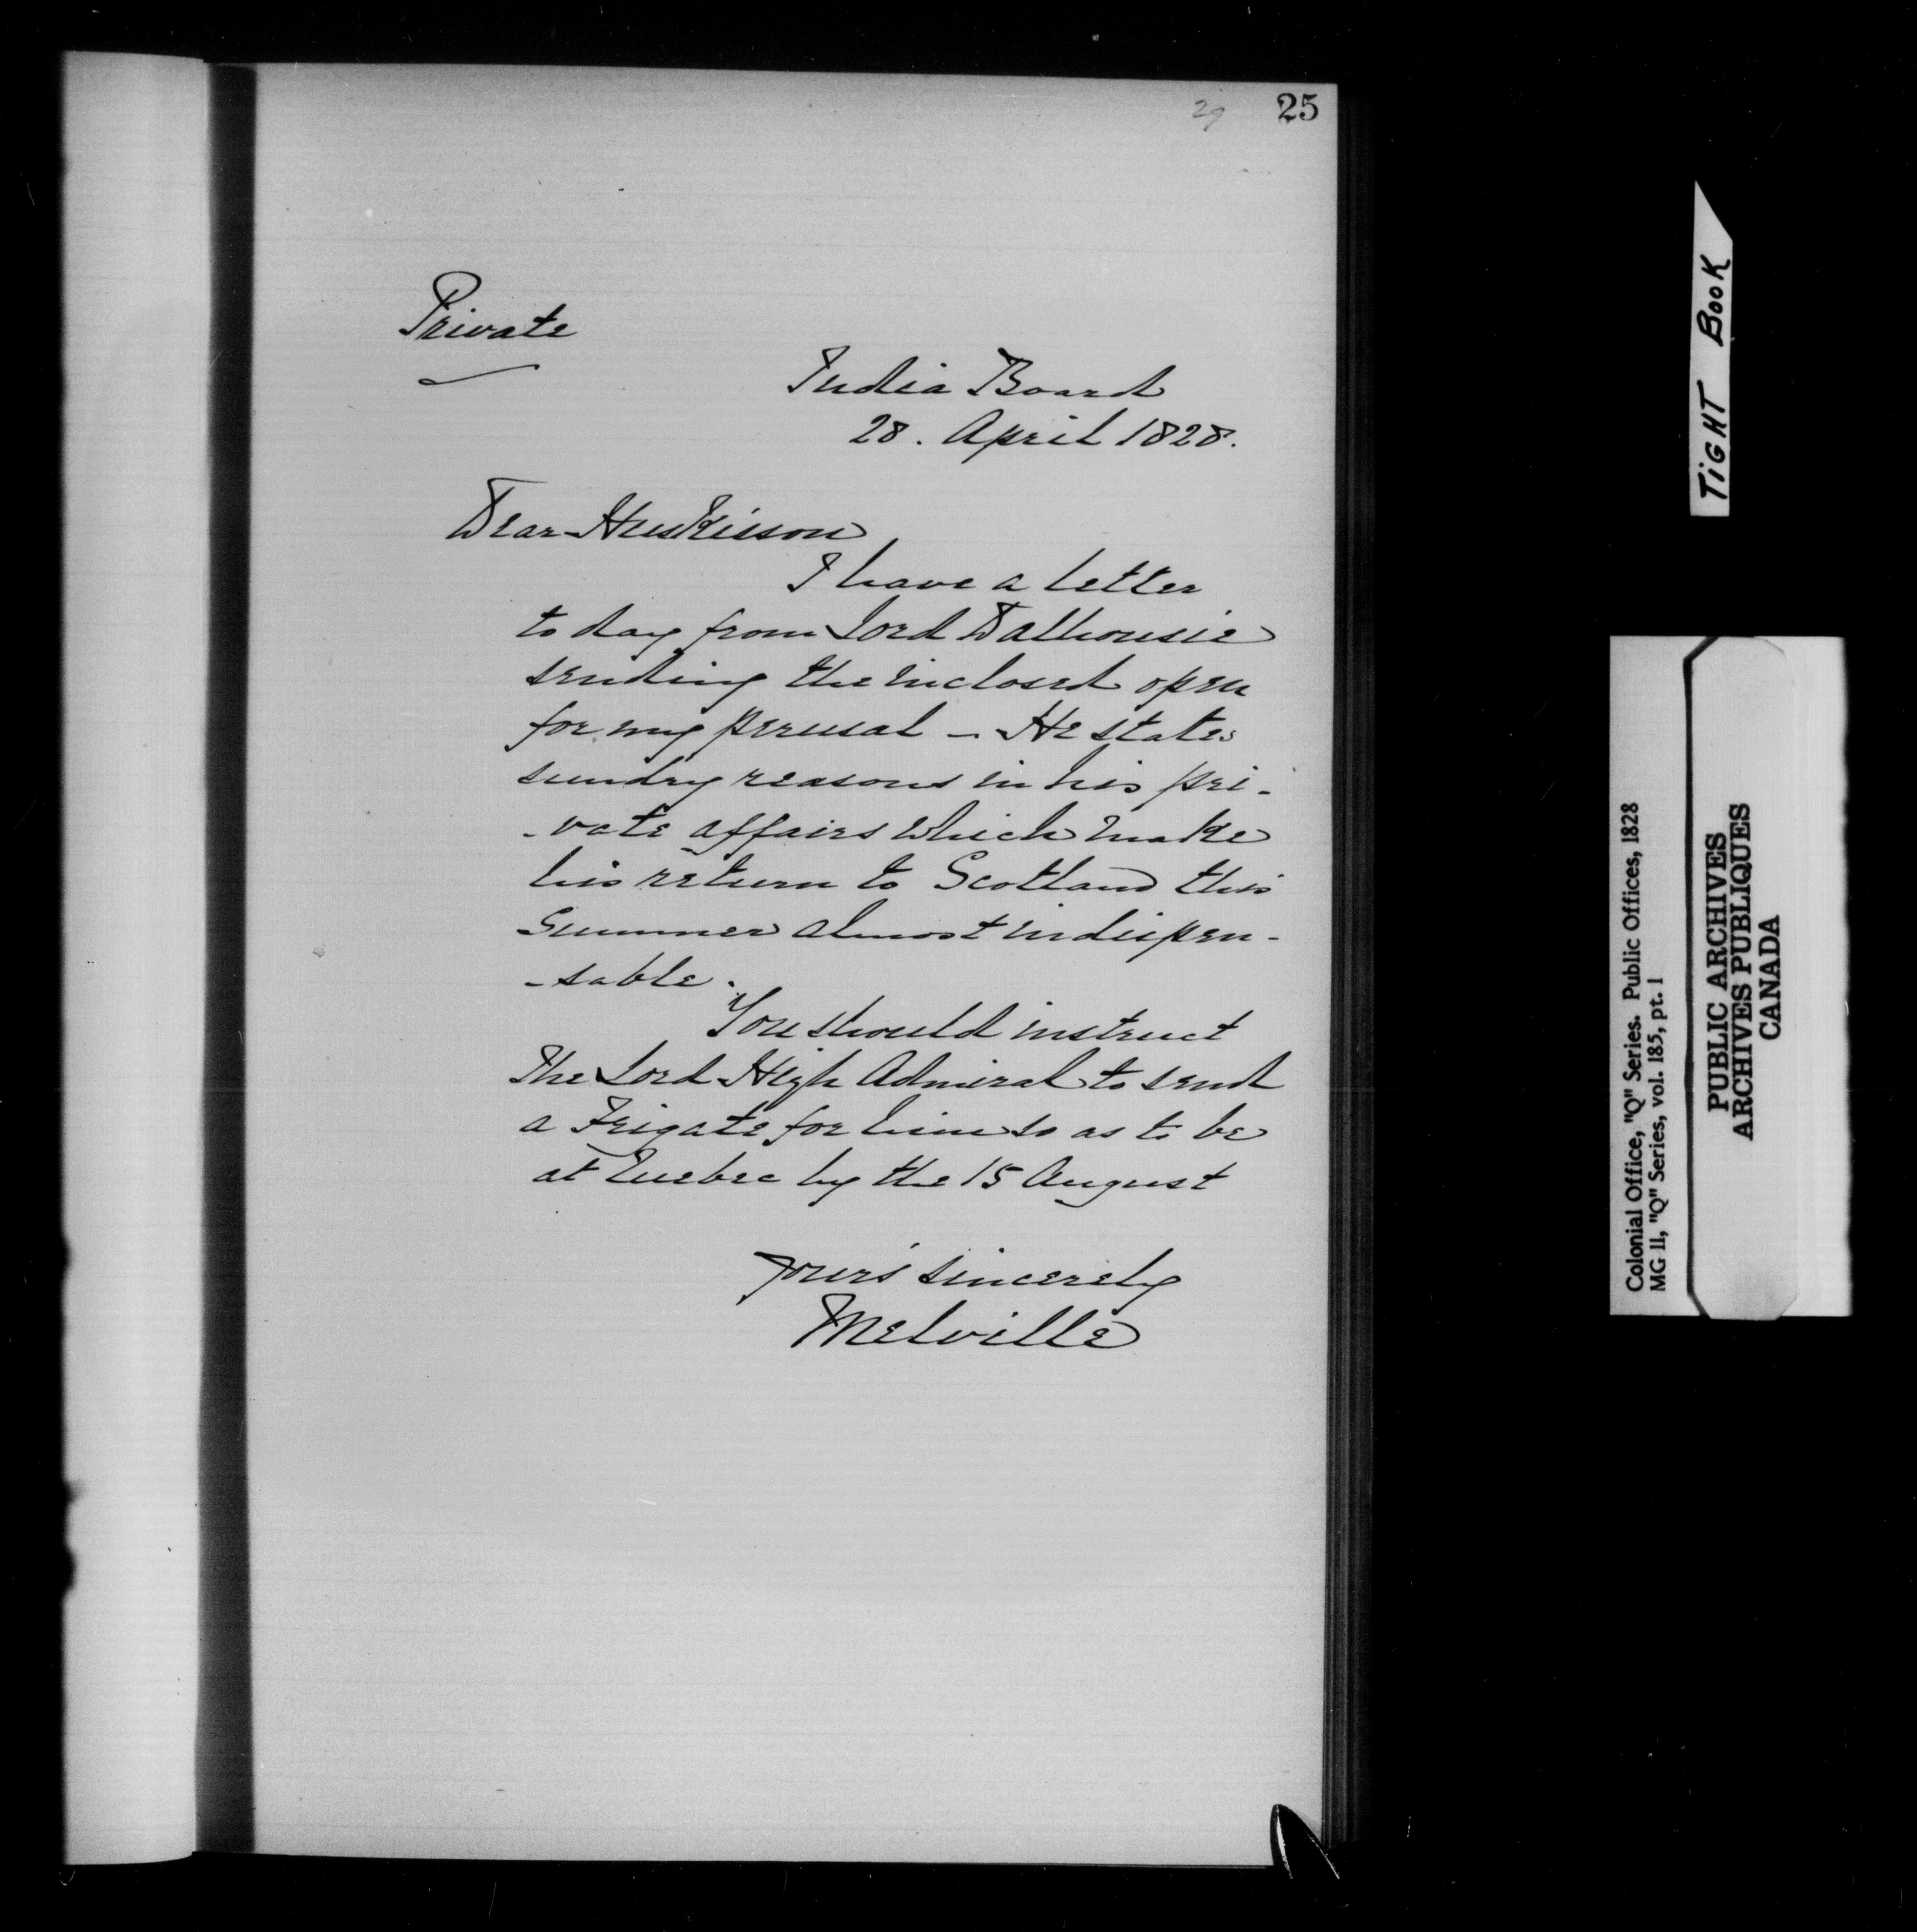 29 25
Private
India Board
28. April 1828.
Dear Huskisson
I have a letter
to day from Lord Dalhousie
sending the inclosed open
for my perusal - He states
sundry reasons in his pri-
-vate affairs which make
his return to Scotland this
Summer almost indispen-
-sable.
You should instruct
The Lord High Admiral to send
a Frigate for him so as to be
at Quebec by the 15 August
Yours sincerely
Melville
TIGHT BOOK
Colonial Office, "Q" Series. Public Offices, 1828
MG 11, "Q" Series, vol. 185, pt. 1
PUBLIC ARCHIVES
ARCHIVES PUBLIQUES
CANADA